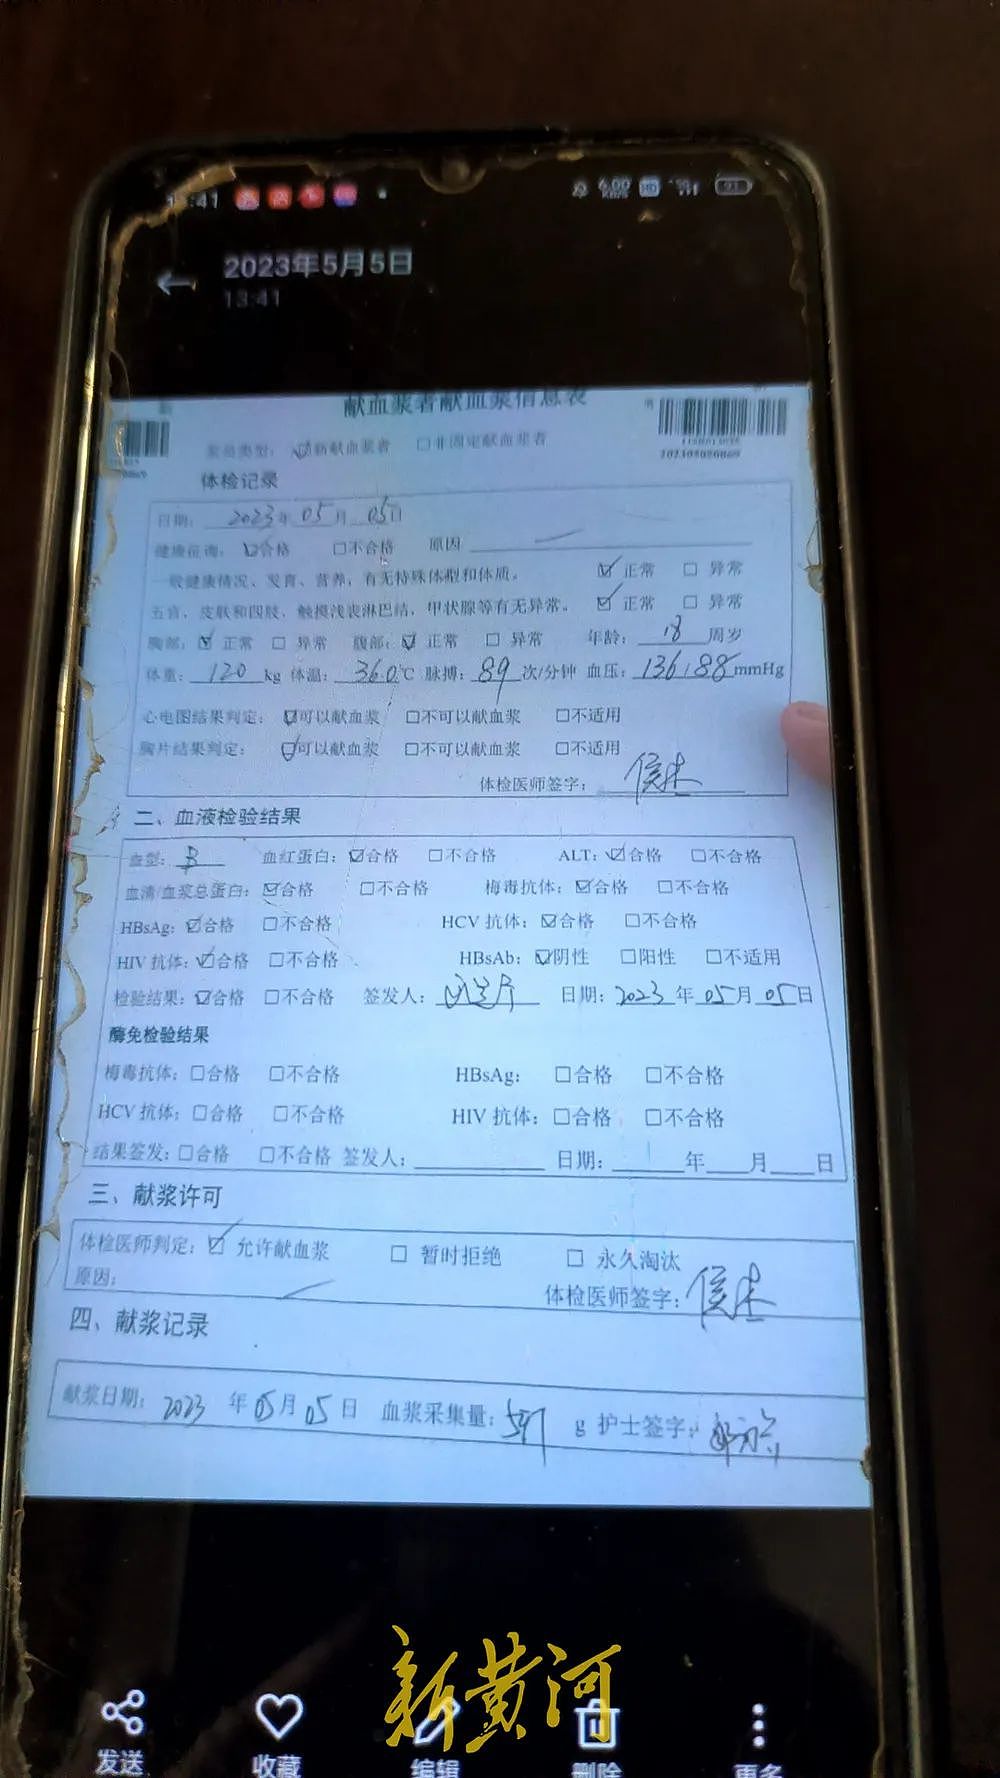 :41
2023年5月5日
13:41
献血浆者献血浆信息表
浆员类型: ☑新献血浆者 □非固定献血浆者
体检记录
日期: 2023年05月05日
健康征询: ☑合格 □不合格 原因
一般健康情况、发育、营养,有无特殊体型和体质。 ☑正常 □异常
五官、皮肤和四肢、触摸浅表淋巴结、甲状腺等有无异常。 ☑正常 □异常
胸部: ☑正常 □异常 腹部: ☑正常 □异常 年龄: 18周岁
体重: 120 kg 体温: 36.0℃ 脉搏: 89次/分钟 血压: 136/88mmHg
心电图结果判定: ☑可以献血浆 □不可以献血浆 □不适用
胸片结果判定: ☑可以献血浆 □不可以献血浆 □不适用
体检医师签字:
二、血液检验结果
血型: B 血红蛋白: ☑合格 □不合格 ALT: ☑合格 □不合格
血清/血浆总蛋白: ☑合格 □不合格 梅毒抗体: ☑合格 □不合格
HBsAg: ☑合格 □不合格 HCV 抗体: ☑合格 □不合格
HIV 抗体: ☑合格 □不合格 HBsAb: ☑阴性 □阳性 □不适用
检验结果: ☑合格 □不合格 签发人: 日期: 2023年05月05日
酶免检验结果
梅毒抗体: □合格 □不合格 HBsAg: □合格 □不合格
HCV 抗体: □合格 □不合格 HIV 抗体: □合格 □不合格
结果签发: □合格 □不合格 签发人: 日期: 年 月 日
三、献浆许可
体检医师判定: ☑ 允许献血浆 □ 暂时拒绝 □ 永久淘汰
原因:
体检医师签字:
四、献浆记录
献浆日期: 2023年05月05日 血浆采集量: 591 g 护士签字:
新黄河
发送 收藏 编辑 删除 更多